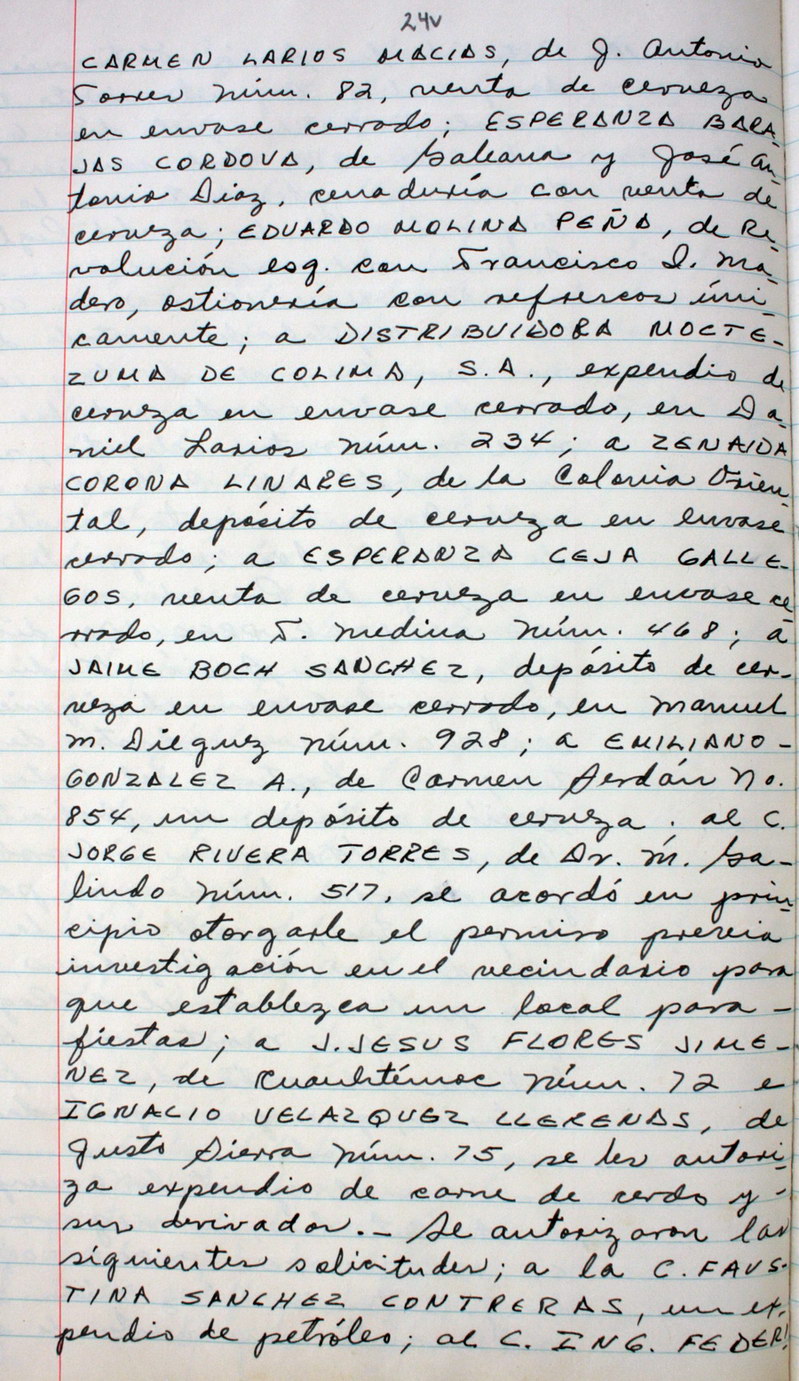 24v
CARMEN LARIOS MACIAS, de J. Antonio
Torres núm. 82, venta de cerveza
en envase cerrado; ESPERANZA BARA-
JAS CORDOVA, de Galeana y José An-
tonio Diaz, cenaduría con venta de
cerveza; EDUARDO MOLINA PEÑA, de Re-
volución esq. con Francisco I. Ma-
dero, ostionería con refrescos úni-
camente; a DISTRIBUIDORA MOCTE-
ZUMA DE COLIMA, S.A., expendio de
cerveza en envase cerrado, en Da-
niel Larios núm. 234; a ZENAIDA
CORONA LINARES, de la Colonia Orien-
tal, depósito de cerveza en envase
cerrado; a ESPERANZA CEJA GALLE-
GOS, venta de cerveza en envase ce-
rrado, en T. Medina núm. 468; a
JAIME BOCH SANCHEZ, depósito de cer-
veza en envase cerrado, en Manuel
M. Dieguez núm. 928; a EMILIANO -
GONZALEZ A., de Carmen Serdán No.
854, un depósito de cerveza; al C.
JORGE RIVERA TORRES, de Dr. M. Ga-
lindo núm. 517, se acordó en prin-
cipio otorgarle el permiso previa
investigación en el vecindario para
que establezca un local para -
fiestas; a J. JESUS FLORES JIME-
NEZ, de Cuauhtémoc núm. 72 e
IGNACIO VELAZQUEZ LLERENAS, de
Justo Sierra núm. 75, se les autori-
za expendio de carne de cerdo y -
sus derivados.- Se autorizaron las
siguientes solicitudes; a la C. FAUS-
TINA SANCHEZ CONTRERAS, un ex-
pendio de petróleo; al C. ING. FEDERI